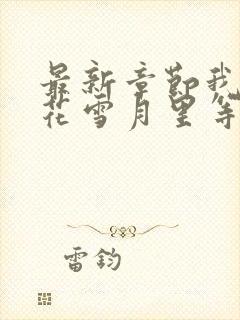 最新章節我
花雪月里等
雷鈞